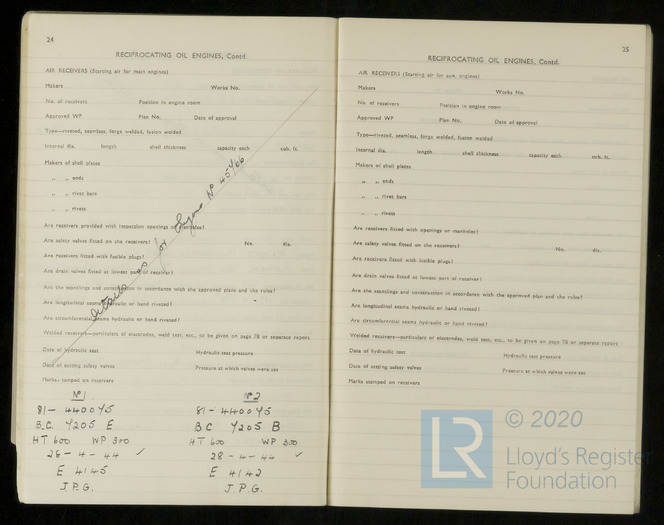 24
RECIPROCATING OIL ENGINES, Contd.
AIR RECEIVERS (Starting air for main engines)
Makers Works No.
No. of receivers Position in engine room
Approved WP Plan No. Date of approval
Type—riveted, seamless, forge welded, fusion welded
Internal dia. length shell thickness capacity each cub. ft.
Makers of shell plates
„ „ ends
„ „ rivet bars
„ „ rivets
Are receivers provided with inspection openings or manholes?
Are safety valves fitted on the receivers? No. dia.
Are receivers fitted with fusible plugs?
Are drain valves fitted at lowest part of receiver?
Are the scantlings and construction in accordance with the approved plans and the rules?
Are longitudinal seams hydraulic or hand riveted?
Are circumferential seams hydraulic or hand riveted?
Welded receivers—particulars of electrodes, weld test, etc., to be given on page 78 or separate report
Date of hydraulic test Hydraulic test pressure
Date of setting safety valves Pressure at which valves were set
Marks stamped on receivers
details as for Nº 45/66
Nº1 Nº2
81- 440045 81- 440045
B.C. 4205 E BC 4205 B
HT 600 WP 300 HT 600 WP 300
28-4-44 ✓ 28-4-44 ✓
E 4145 E 4142
J.P.G. J.P.G.
25
RECIPROCATING OIL ENGINES, Contd.
AIR RECEIVERS (Starting air for aux. engines)
Makers Works No.
No. of receivers Position in engine room
Approved WP Plan No. Date of approval
Type—riveted, seamless, forge welded, fusion welded
Internal dia. length shell thickness capacity each cub. ft.
Makers of shell plates
„ „ ends
„ „ rivet bars
„ „ rivets
Are receivers fitted with openings or manholes?
Are safety valves fitted on the receivers? No. dia.
Are receivers fitted with fusible plugs?
Are drain valves fitted at lowest part of receiver?
Are the scantlings and construction in accordance with the approved plan and the rules?
Are longitudinal seams hydraulic or hand riveted?
Are circumferential seams hydraulic or hand riveted?
Welded receivers—particulars of electrodes, weld test, etc., to be given on page 78 or separate report
Date of hydraulic test Hydraulic test pressure
Date of setting safety valves Pressure at which valves were set
Marks stamped on receivers
LR © 2020
Lloyd's Register
Foundation